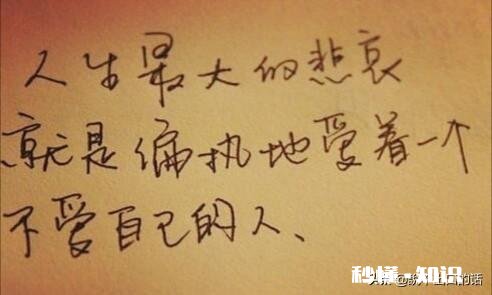 人生最大的悲哀
就是偏执地爱着一个
不爱自己的人、
秒懂·知识